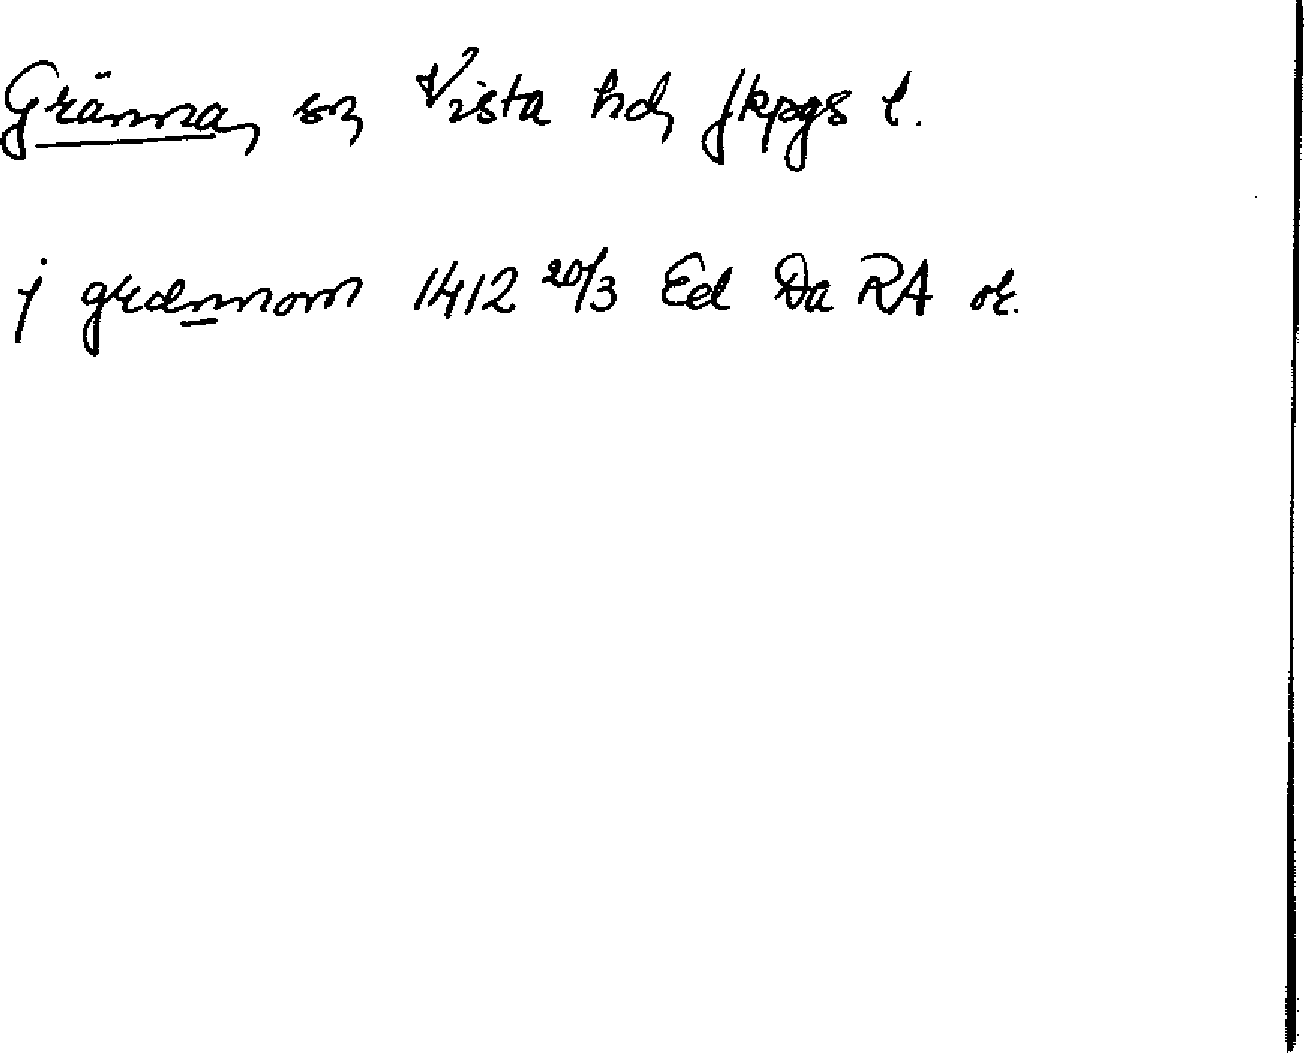 Gränna, sn, Vista hd, Jkpgs l.
j grænnom 1412 20/3 Eel Da RA or.